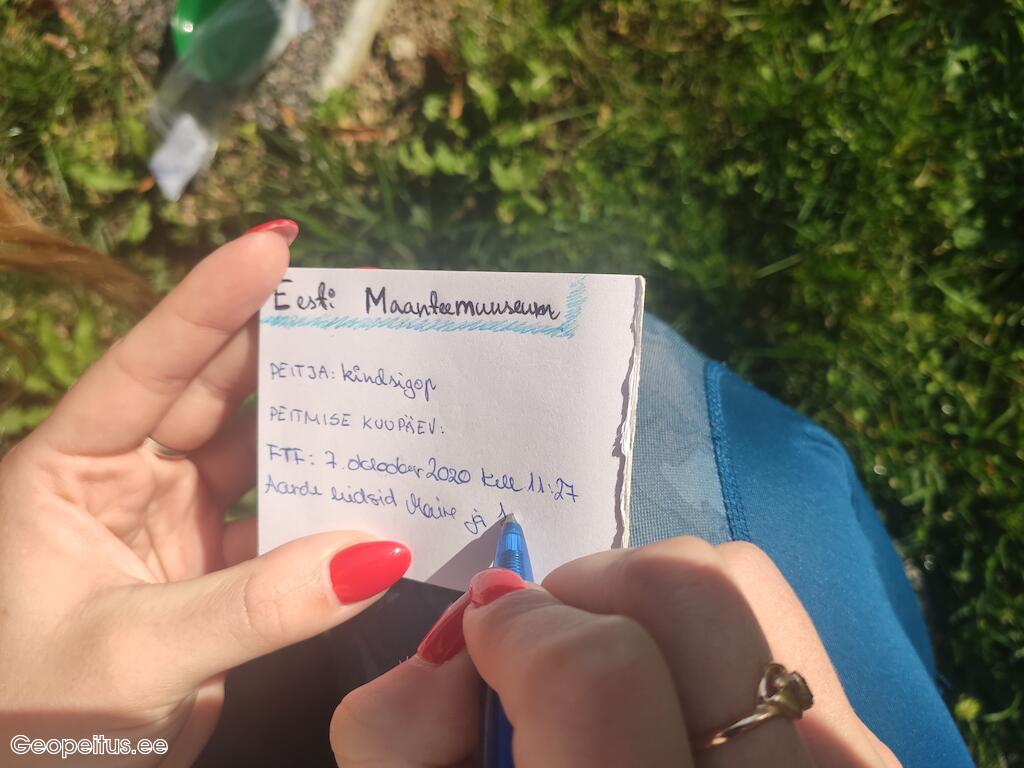 Eesti Maanteemuuseum
PEITJA: kindsigop
PEITMISE KUUPÄEV:
FTF: 7. oktoober 2020 kell 11:27
Aarde leidsid Maire ja
Geopeitus.ee